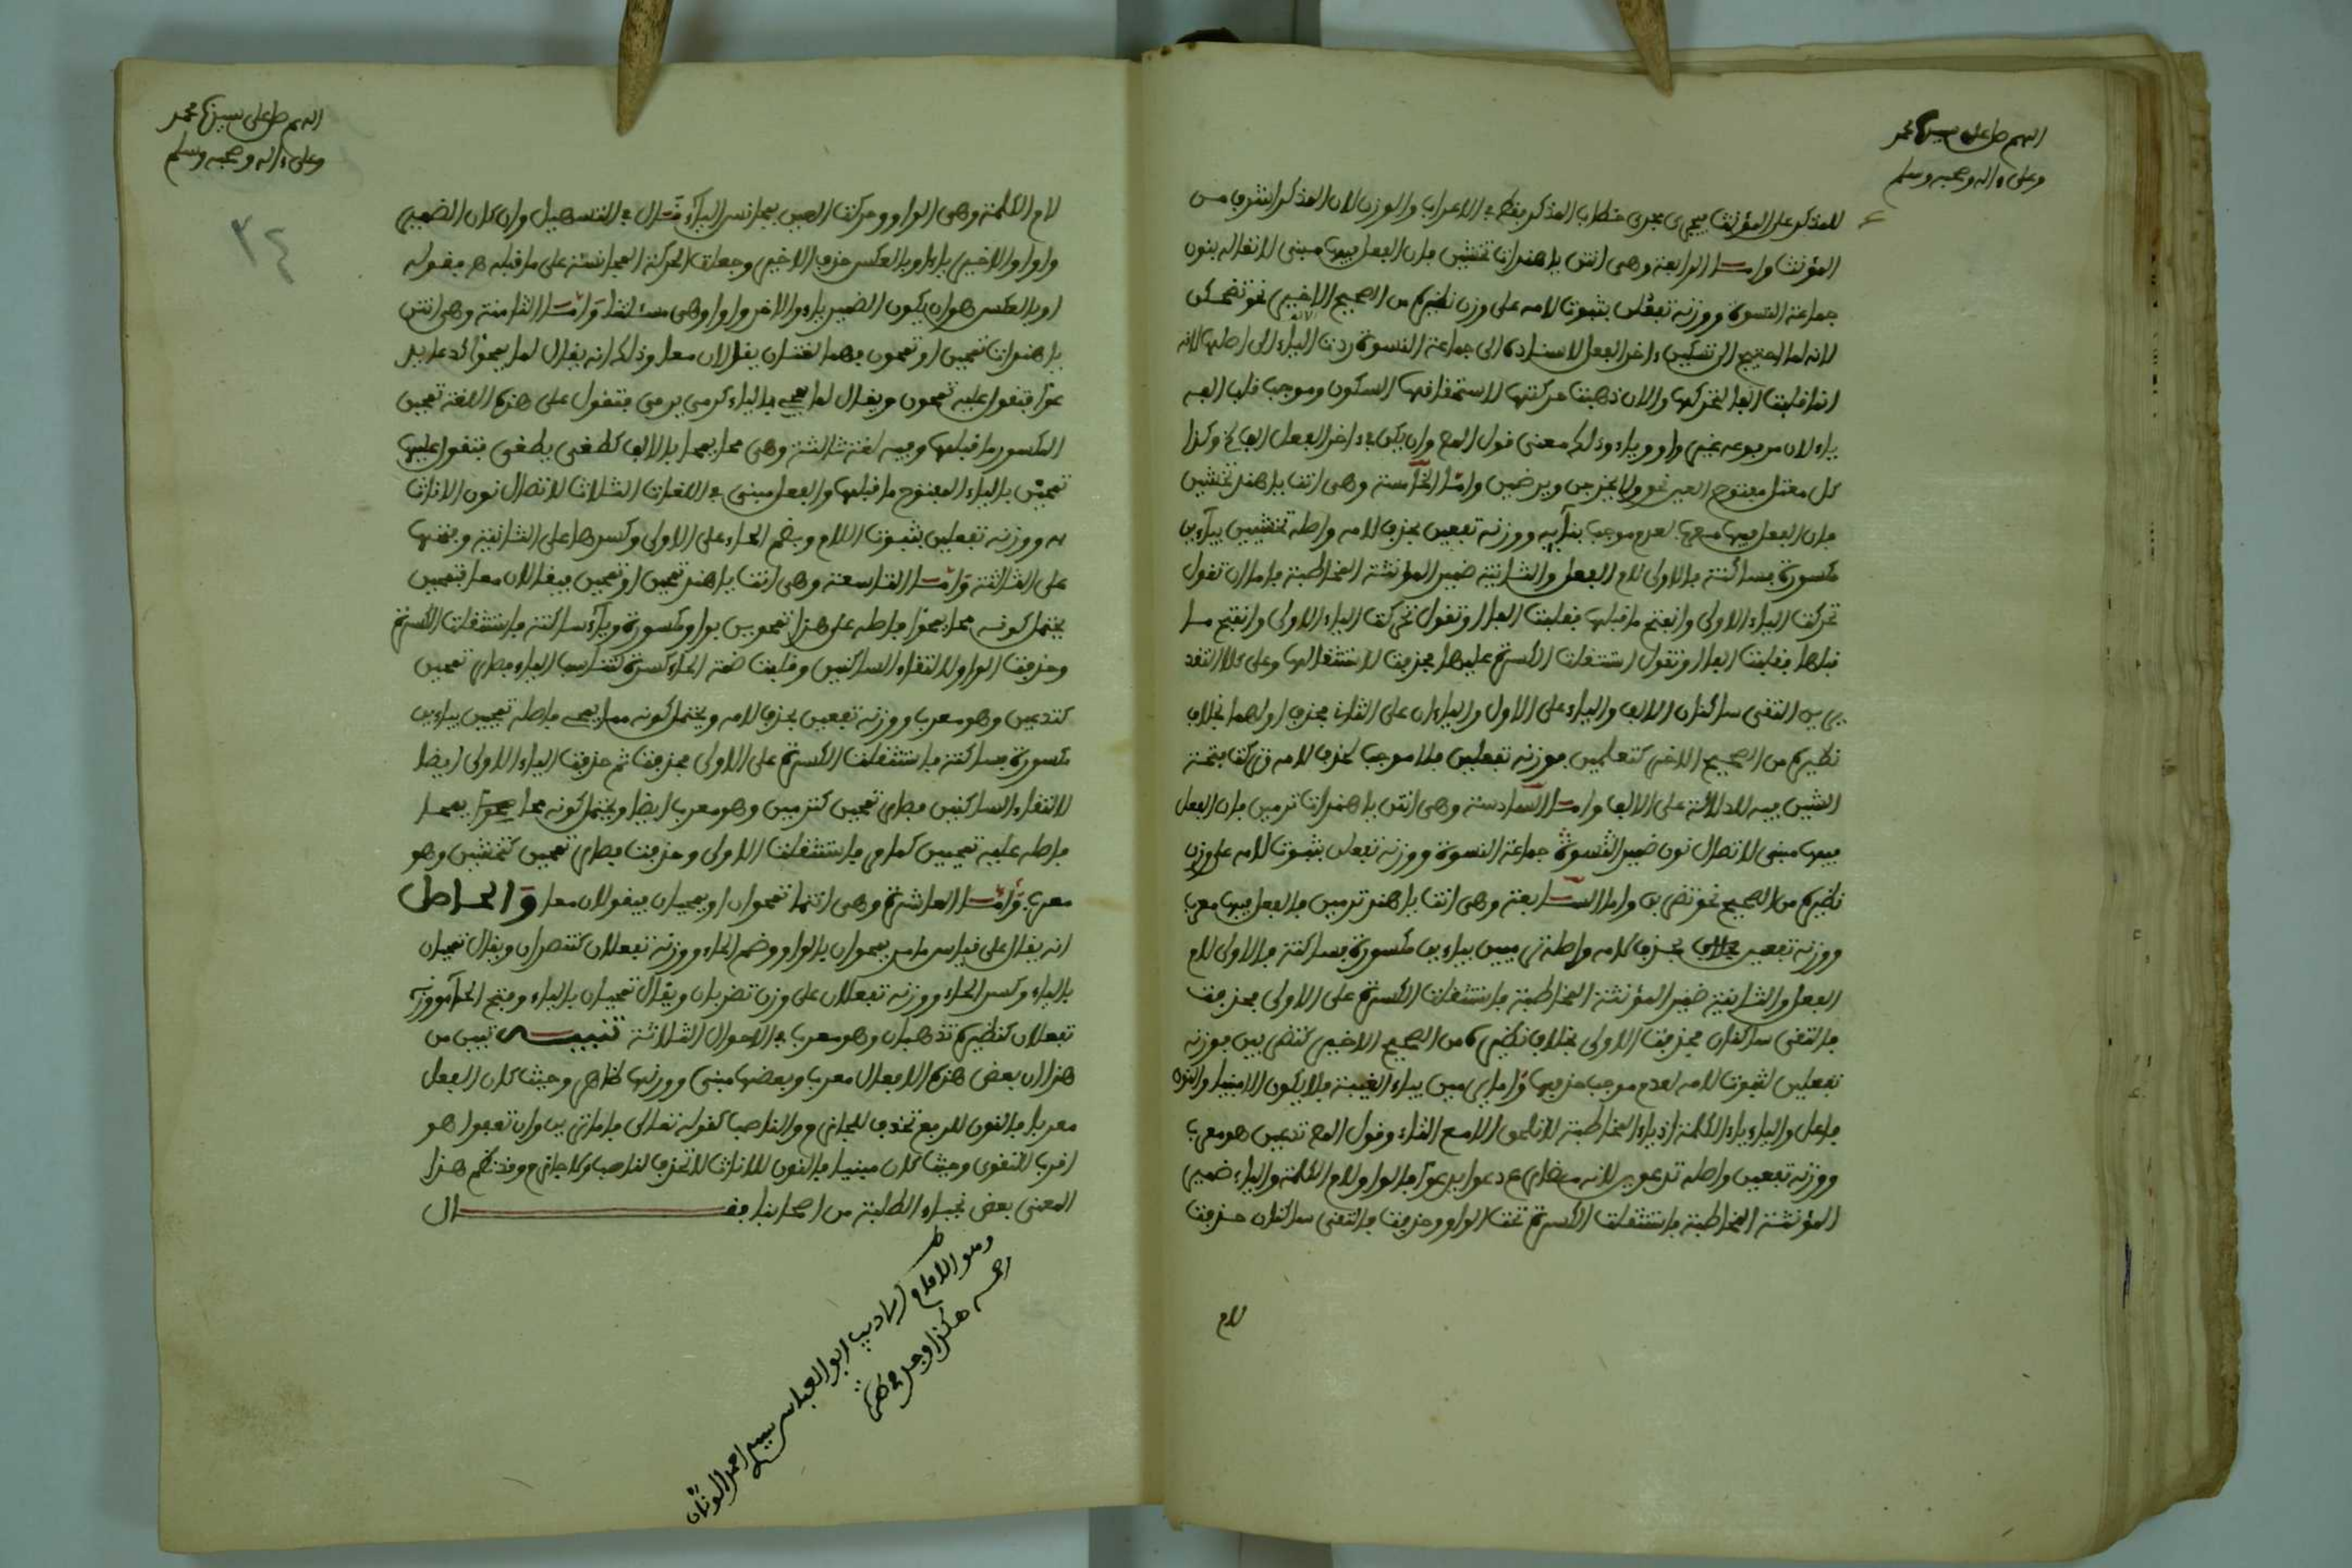 اللهم صل على سيدنا محمد
وعلى ءاله وصحبه وسلم
للمذكر على المؤنث يجري مجرى خطاب المذكر فقط في الاعراب والوزن لان المذكر اشرف من
المؤنث وامـا الرابعة وهي انتن يا هندات تخشين فان الفعل فيها مبني لاتصاله بنون
جماعة النسوة ووزنه تفعلن بثبوت لامه على وزن نظيره من الصحيح الاخير نحو تضحكن
لانه لما احتيج الى تسكين ءاخر الفعل لاسناده الى جماعة النسوة ردت الياء الى اصلها لانه
انما قلبت الفا لتحركها والان ذهبت حركتها لاستحقاقها السكون وموجب قلب الفه
ياء لان مرفوعه غير واو وياء وذلك معنى قول المص وان يكن في ءاخر الفعل الف الخ وكذا
كل معتل مفتوح العين نحو يخزين ويرضين وامـا الخامسة وهي انت يا هند تخشين
فان الفعل فيها معرب لعدم موجب بنائه ووزنه تفعين بحذف لامه واصله تخشيين بياءين
مكسورة فساكنة فالاولى لام الفعل والثانية ضمير المؤنثة المخاطبة فاما ان تقول
تحركت الياء الاولى وانفتح ما قبلها فقلبت الفا او تقول تحركت الياء الاولى وانفتح مـا
قبلها فقلبت الفا او تقول استثقلت الكسرة عليها فحذفت لاستثقالها وعلى كلا التقد
يرين التقى ساكنان الالف والياء على الاول والياءان على الثاني فحذف اولهما بخلاف
نظيره من الصحيح الاخر كتعلمين فوزنه تفعلين فلا موجب لحذف لامه وتركت فتحة
الشين فيه للدلالة على الالف وامـا السادسة وهي انتن يا هندات ترمين فان الفعل
فيها مبني لاتصال نون ضمير النسوة جماعة النسوة ووزنه تفعلن بثبوت لامه على وزن
نظيره من الصحيح نحو تضربن واما السـابعة وهي انت يا هند ترمين فالفعل فيها معرب
ووزنه تفعين بحذف لامه واصله ترميين بياءين مكسورة فساكنة فالاولى لام
الفعل والثانية ضمير المؤنثة المخاطبة فاستثقلت الكسرة على الاولى فحذفت
فالتقى ساكنان فحذفت الاولى بخلاف نظيره من الصحيح الاخير كتضربين فوزنه
تفعلين لثبوت لامه لعدم موجب حذفها واما يرمين بياء الغيبة فلا يكون الا مبنيا والنون
فاعل والياء ياء الكلمة اذ ياء المخاطبة لا تلحق الا مع التاء وقول المص تدعين هو معرب
ووزنه تفعين واصله تدعوين لانه مضارع دعوا يدعوا فالواو لام الكلمة والياء ضمير
المؤنثة المخاطبة فاستثقلت الكسرة تحت الواو وحذفت فالتقى ساكنان حذفت
لام
اللهم صل على سيدنا محمد
وعلى ءاله وصحبه وسلم
٢٤
لام الكلمة وهي الواو وحركت العين بمجانس الياء قال في التسهيل وان كان الضمير
واوا والاخير ياء او بالعكس حذف الاخير وجعلت الحركة المجانسة على ما قبله هـ فقوله
او بالعكس هو ان يكون الضمير ياء والاخر واوا وهي مسئلتنا وامـا الثامنة وهي انتن
يا هندات تمحين او تمحون فهما لغتان يقالان معا وذلك انه يقال لما يمحوا كدعا يد
عوا فتقول عليه تمحون ويقال لما يمحي بالياء كرمى يرمي فتقول على هذه اللغة تمحين
المكسور ما قبلها وفيه لغة ثالثة وهي محا يمحا بالالف كطغى يطغى فتقول عليها
تمحين بالياء المفتوح ما قبلها والفعل مبني في اللغات الثلاث لاتصال نون الاناث
به ووزنه تفعلن بثبوت اللام وبضم الحاء على الاولى وكسرها على الثانية وفتحها
على الثالثة وامـا التاسعة وهي انت يا هند تمحين او تمحين فيقالان معا فتمحين
يحتمل كونه محا يمحوا فاصله على هذا تمحوين بواو مكسورة وياء ساكنة فاستثقلت الكسرة
وحذفت الواو لالتقاء الساكنين وقلبت ضمة الحاء كسرة لتناسب الياء فصار تمحين
كتدعين وهو معرب ووزنه تفعين بحذف لامه ويحتمل كونه مما يمحي فاصله تمحيين بياءين
مكسورة فساكنة فاستثقلت الكسرة على الاولى فحذفت ثم حذفت الياء الاولى ايضا
لالتقاء الساكنين فصار تمحين كترمين وهو معرب ايضا ويحتمل كونه محا يمحا
فاصله عليه تمحيين كما مر فاستثقلت الاولى وحذفت فصار تمحين كتخشين وهو
معرب وامـا العاشرة وهي انتما تمحوان او يمحيان فيقولان معا والحـاصل
انه يقال على قياس ما مر يمحوان بالواو وضم الحاء ووزنه تفعلان كتنصران ويقال تمحيان
بالياء وكسر الحاء ووزنه تفعلان على وزن تضربان ويقال تمحيان بالياء وفتح الحاء ووزنه
تفعلان كنظيره تذهبان وهو معرب في الاحوال الثلاثة تنبيـه تبين من
هذا ان بعض هذه الافعال معرب وبعضها مبني ووزنها ظاهر وحيث كان الفعل
معربا فالنون للرفع تحذف للجازم والناصب كقوله تعالى فاما ترين وان تعفوا هو
اقرب للتقوى وحيث كان مبنيا فالنون للاناث لا تحذف لناصب ولا جازم وقد نظم هـذا
المعنى بعض نجباء الطلبة من اصحابنا فقـــــال
وهو الامام الاديب ابو العباس سيدي احمد الوزان
رحمه هكذا وجد في طرة